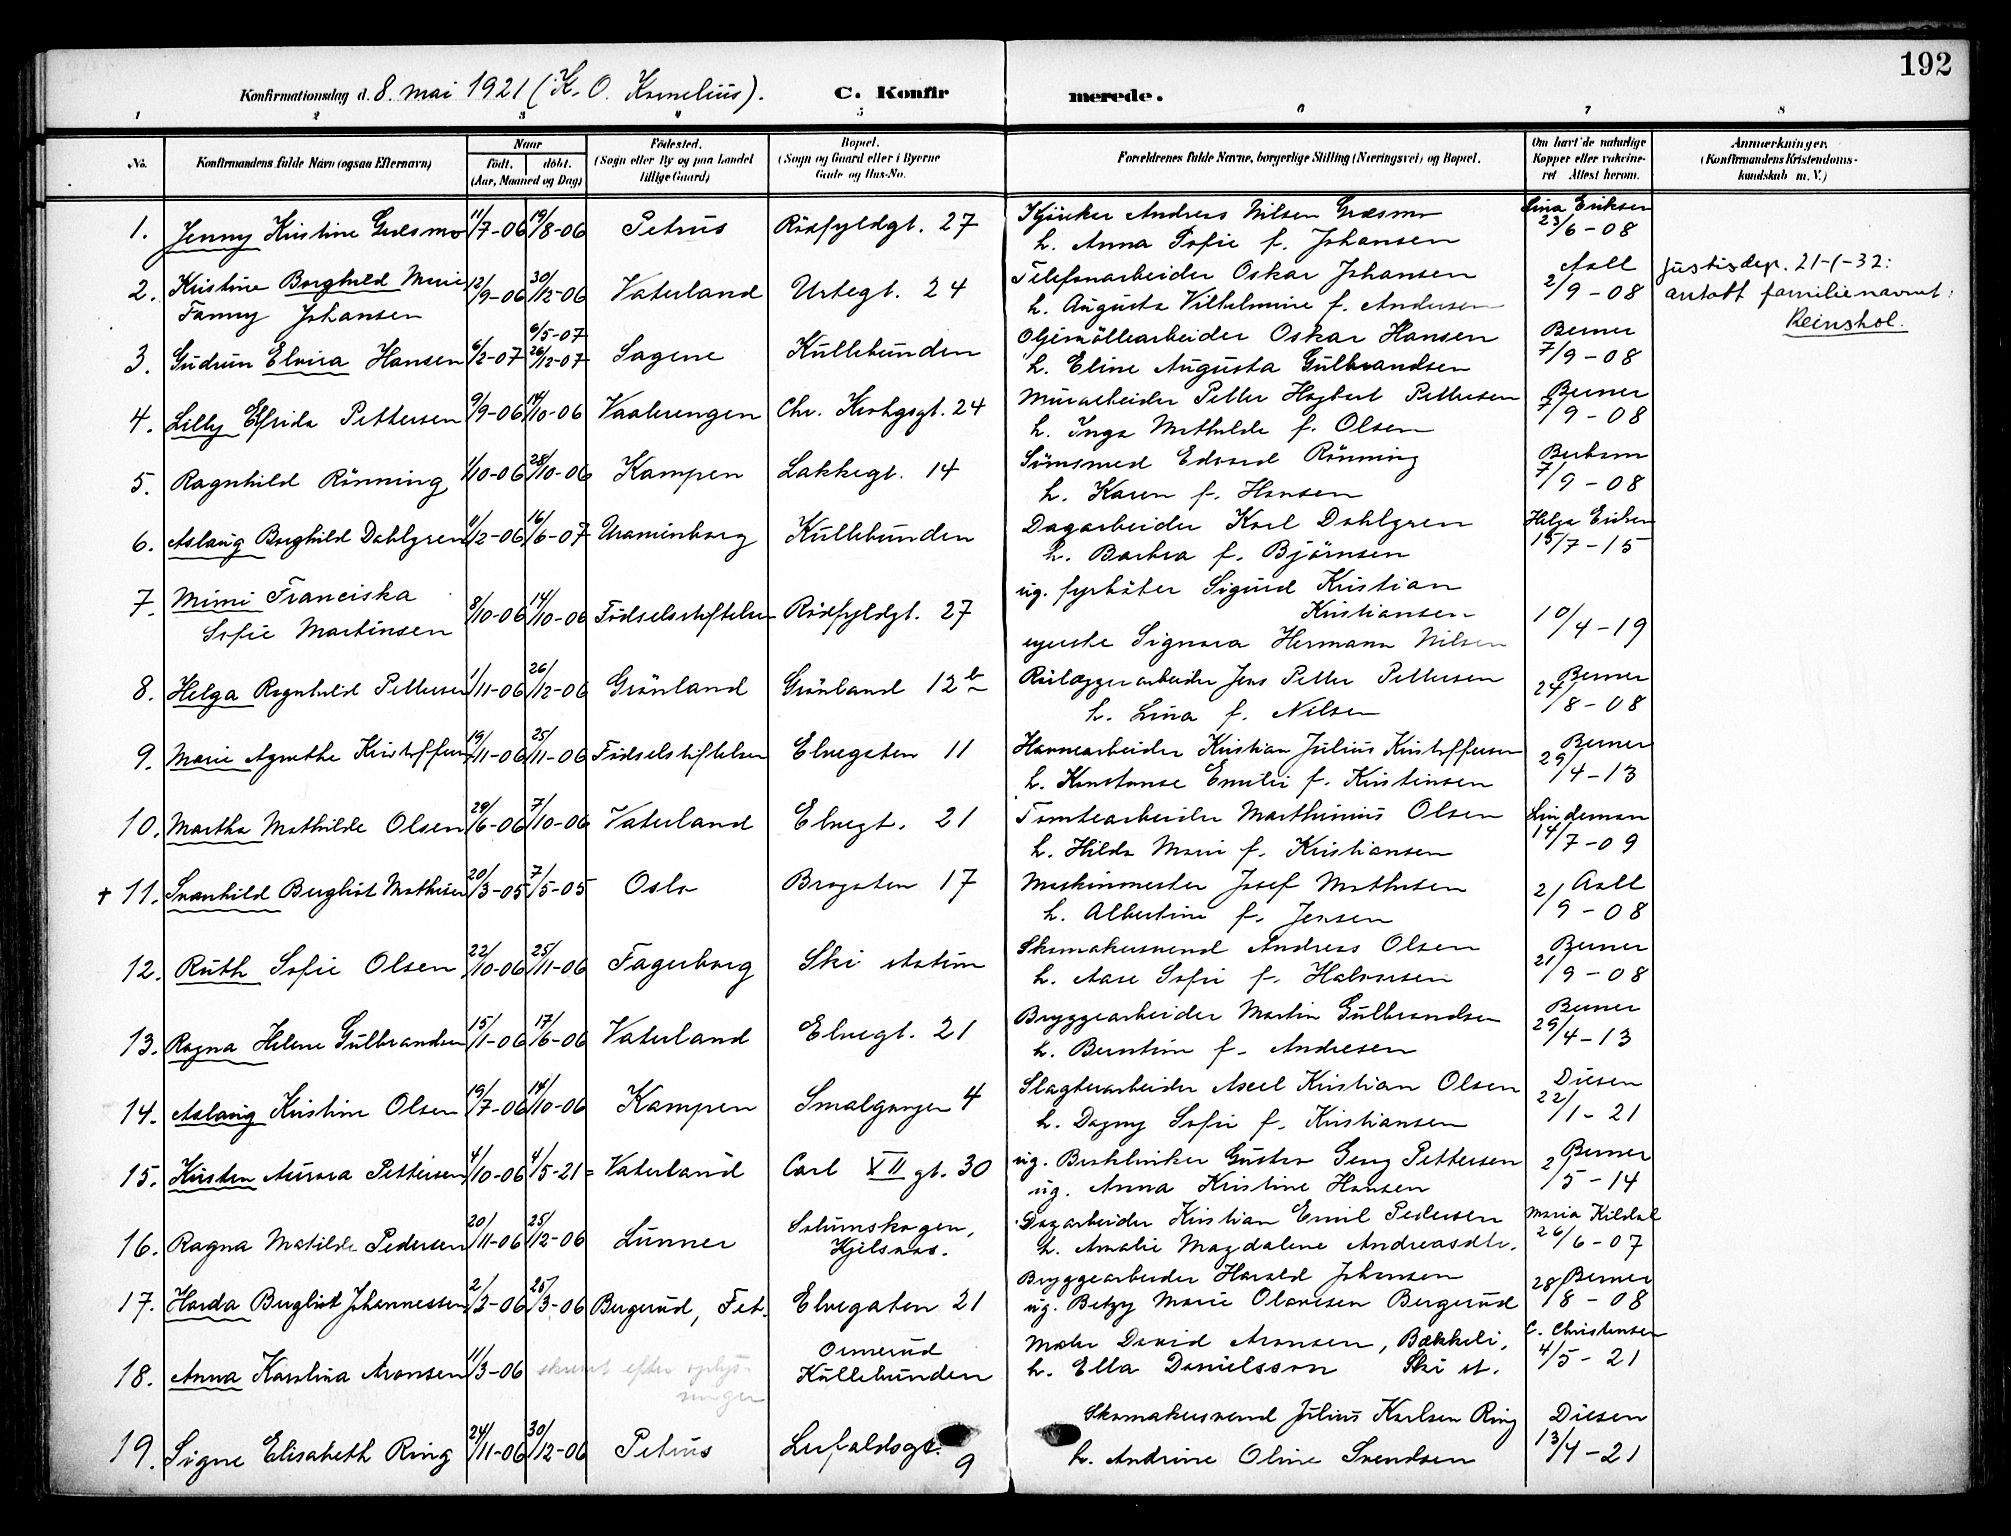 192
Konfirmationsdag d. 8. mai 1921 (K. O. Kornelius). C. Konfirmerede.
1 2 3 4 5 6 7 8
No. Konfirmandens fulde Navn (ogsaa Efternavn) Naar født. døbt. (Aar, Maaned og Dag) Fødested. (Sogn eller By og paa Landet tillige Gaard) Bopæl. (Sogn og Gaard eller i Byerne Gade og Hus-No. Forældrenes fulde Navne, borgerlige Stilling (Næringsvei) og Bopæl. Om havt de naturlige Kopper eller vakcineret Attest herom. Anmærkninger. (Konfirmandens Kristendomskundskab m. V.)
1. Jenny Kristine Græsmo 11/7-06 19/8-06 Petrus Rødfyldgt. 27 Kjørekar Andreas Nilsen Græsmo Lina Eriksen
h. Anna Sofie f. Johansen 23/6-08
2. Kristine Borghild Marie 12/9-06 30/12-06 Vaterland Urtegt. 24 Telefonarbeider Oskar Johansen Aall Justisdep. 21-1-32:
Fanny Johansen h. Augusta Vilhelmine f. Andersen 2/9-08 antatt familienavnet:
Reinshol.
3. Gudrun Elvira Hansen 6/2-07 6/5-07 26/12-07 Sagene Kullebunden Oljemøllearbeider Oskar Hansen Berner
h. Eline Augusta Gulbrandsen 7/9-08
4. Lilly Elfrida Pettersen 9/9-06 14/10-06 Vaalerengen Chr. Krohgsgt. 24 Murarbeider Petter Hagbert Pettersen Berner
h. Inga Mathilde f. Olsen 7/9-08
5. Ragnhild Rønning 1/10-06 28/10-06 Kampen Lakkegt. 14 Sømsmed Edvard Rønning
h. Karen f. Hansen 7/9-08
6. Aslaug Borghild Dahlgren 11/12-06 16/6-07 Uranienborg Kullebunden Dagarbeider Karl Dahlgren Helga Eriksen
h. Barbra f. Bjørnsen 15/7-15
7. Mimi Franciska ug. fyrbøter Sigurd Kristian
Sofie Martinsen 8/10-06 14/10-06 Fødselsstiftelsen Rødfyldgt. 27 Kristiansen 10/4-19
Signora Hermana Nilsen
8. Helga Ragnhild Pettersen 1/11-06 26/12-06 Grønland Grønland 12b Rørlæggerarbeider Jens Petter Pettersen Berner
h. Lina f. Nilsen 24/8-08
9. Marie Agnethe Kristoffersen 19/11-06 25/11-06 Fødselstiftelsen Elvegaten 11 Havnearbeider Kristian Julius Kristoffersen Berner
h. Konstanse Emilie f. Kristensen 29/4-13
10. Martha Mathilde Olsen 29/6-06 7/10-06 Vaterland Elvegt. 21 Tomtearbeider Marthinius Olsen Lindeman
h. Hilda Marie f. Kristiansen 14/7-09
+ 11. Svanhild Berglist Mathisen 20/3-05 7/5-05 Oslo Brogaten 17 Maskinmester Josef Mathisen Aall
h. Albertine f. Jensen 21/9-08
12. Ruth Sofie Olsen 22/10-06 25/11-06 Fagerborg Ski station Skomakersvend Andreas Olsen Berner
h. Aase Sofie f. Halvorsen 21/9-08
13. Ragna Helene Gulbrandsen 15/1-06 17/6-06 Vaterland Elvegt. 21 Bryggearbeider Martin Gulbrandsen Berner
h. Berntine f. Andresen 29/4-13
14. Aslaug Kristine Olsen 19/7-06 14/10-06 Kampen Smalgangen 4 Slagterarbeider Axel Kristian Olsen Diesen
h. Dagny Sofie f. Kristiansen 22/1-21
15. Kirsten Aurora Pettersen 4/10-06 4/5-21 = Vaterland Carl XII gt. 30 ug. Gustav Georg Pettersen Berner
ug. Anna Kristine Hansen 2/5-14
16. Ragna Matilde Pedersen 20/11-06 25/12-06 Lunner Solumskogen, Dagarbeider Kristian Emil Pedersen Maria Kildal
Kjelsaas. h. Amalie Magdalene Andreasdtr. 26/6-07
17. Harda Berglist Johannessen 2/3-06 25/3-06 Bergerud, Fet. Elvegaten 21 Bryggearbeider Harald Johansen Berner
ug. Betzy Marie Olavesen Bergerud 28/8-08
18. Anna Karolina Aronsen 11/3-06 skrevet efter oplysninger Ormerud Maler David Aronsen, Bækkeli, C. Christensen
Kullebunden h. Ella Danielsson Ski st. 4/5-21
19. Signe Elisabeth Ring 24/11-06 30/12-06 Petrus Lufaldsgt. 9 Skomakersvend Julius Karlsen Ring Diesen
h. Andrine Oline Svendsen 13/4-21